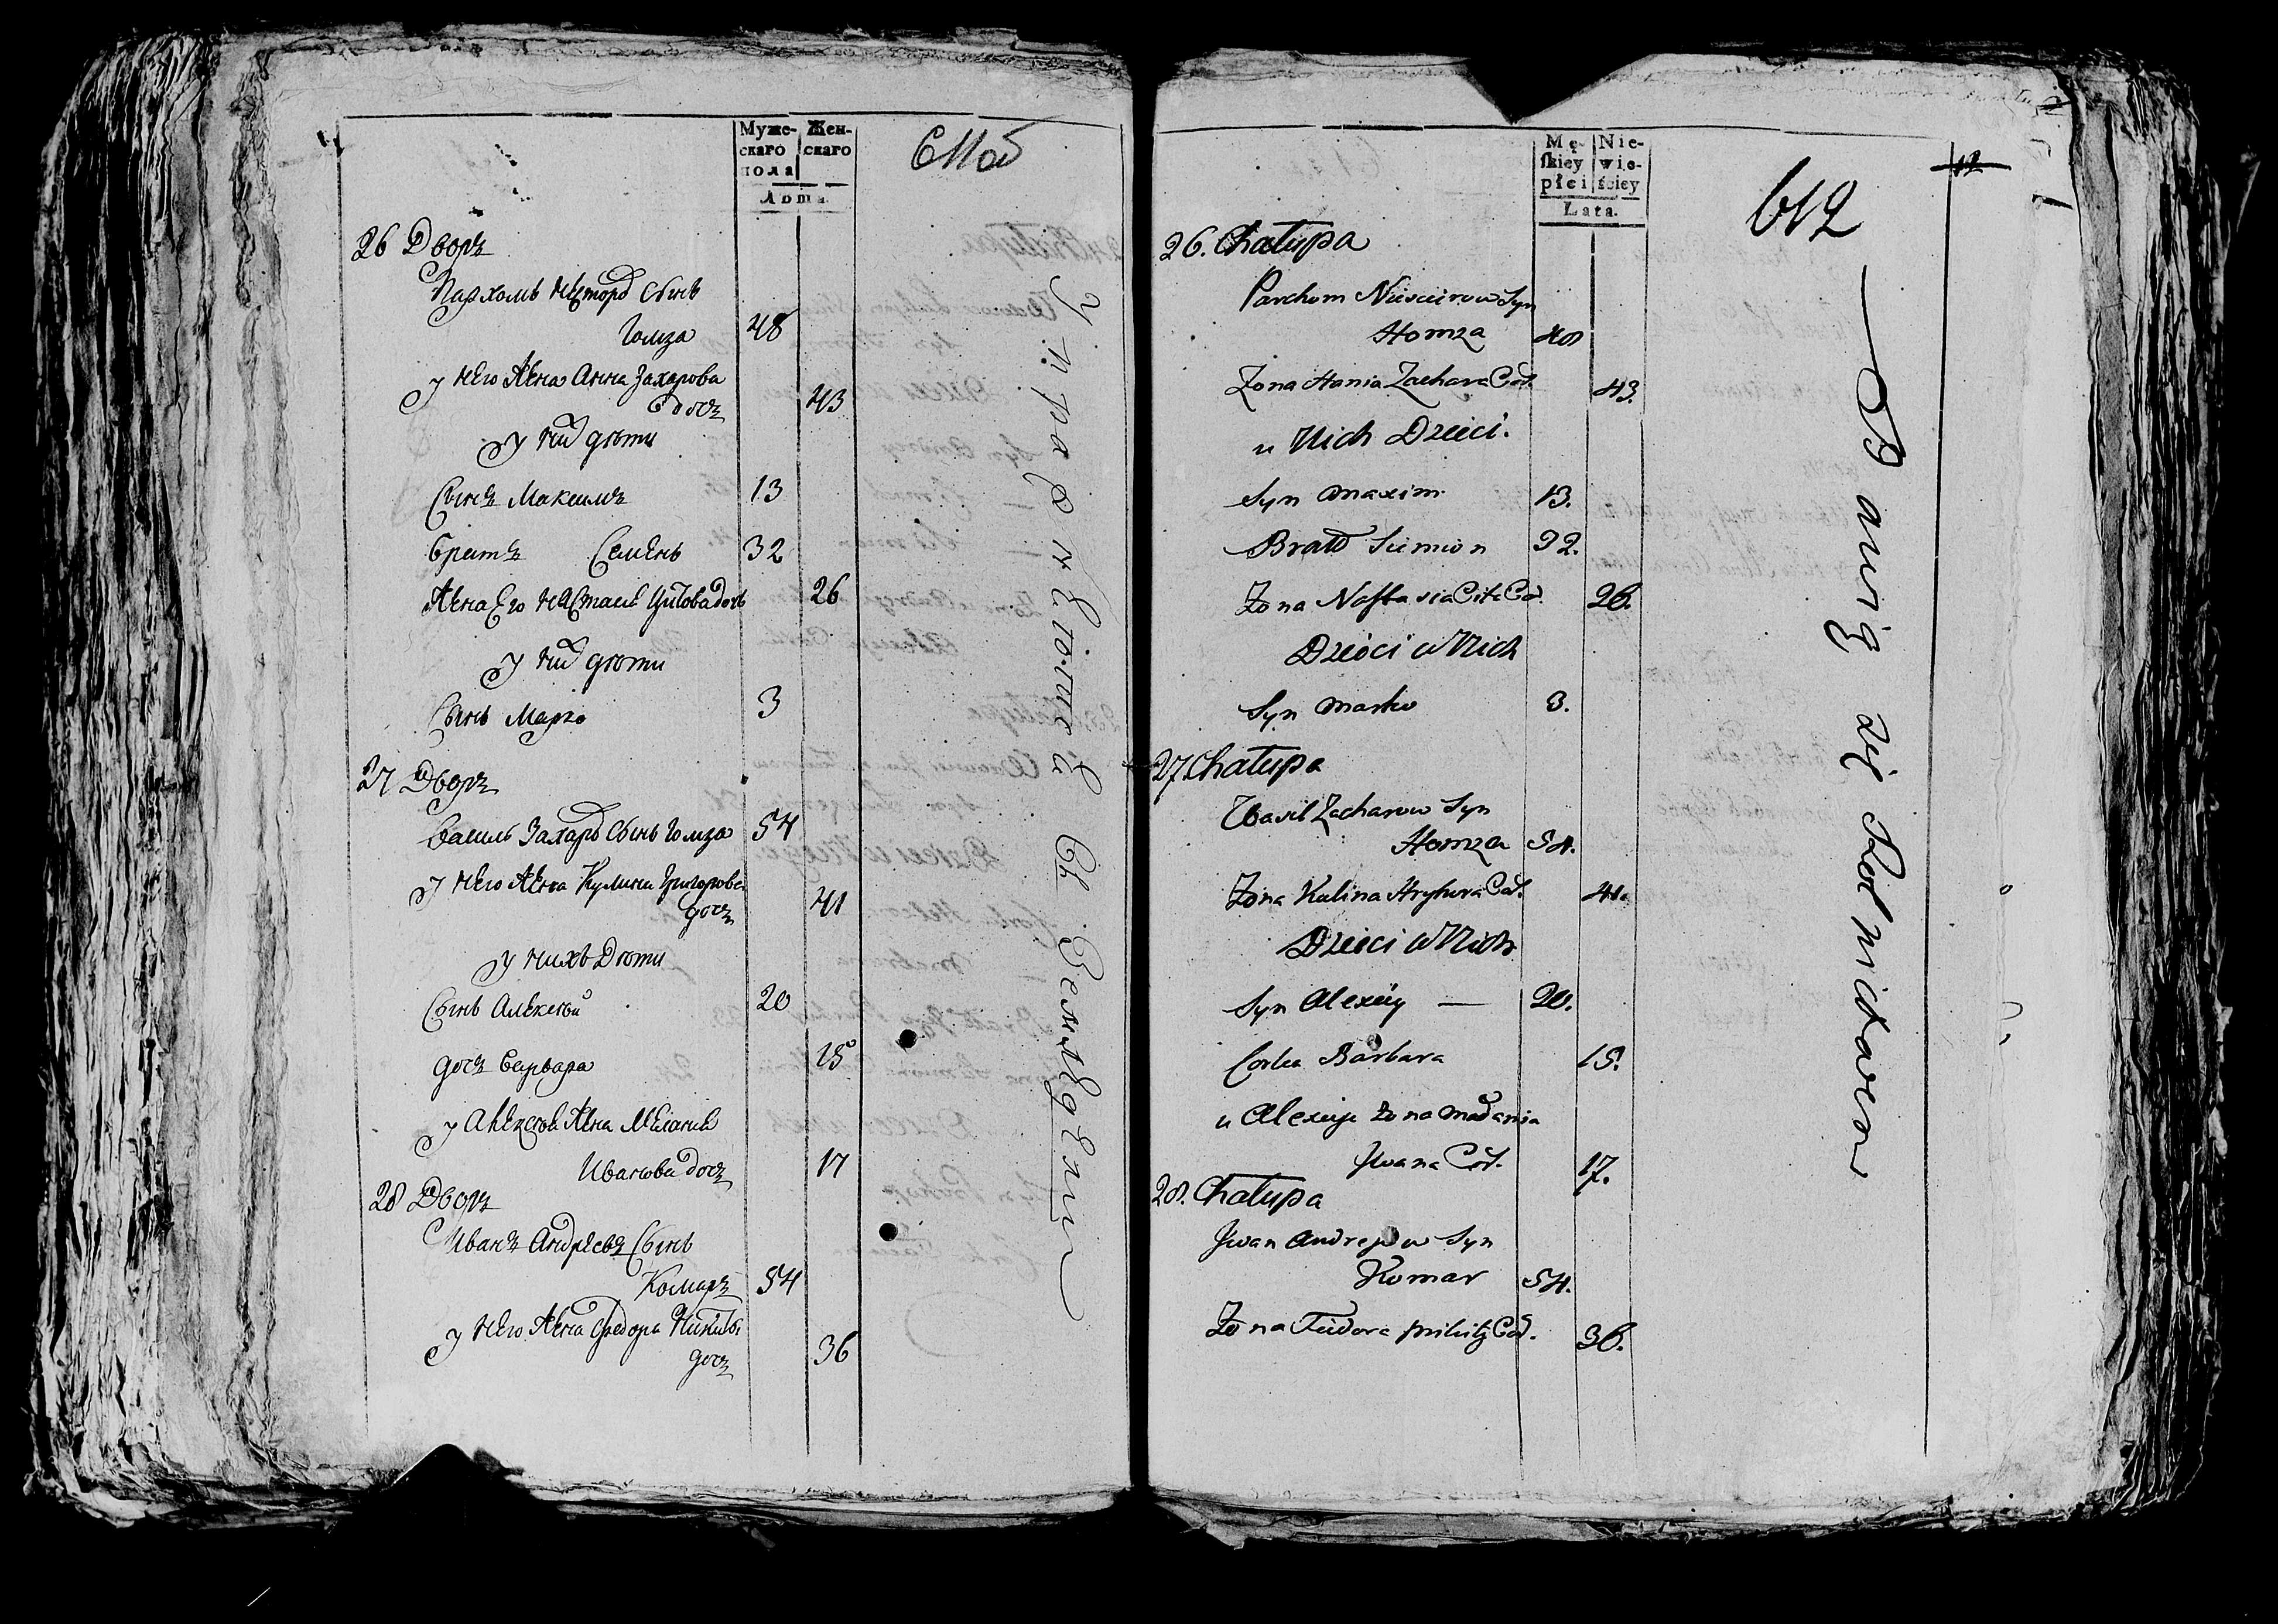 Муже-
скаго
пола
Жен-
скаго
Лѣта.
611об
26 Дворъ
Пархомъ Нестеров Сынъ
Гомза 48
У Него Жена Анна Захарова
дочь 43
У них дѣти
Сынъ Максимъ 13
братъ Семенъ 32
Жена Его Настасья Цитова дочь 26
У них дѣти
Сынъ Марко 3
27 Дворъ
Василь Захаров Сынъ Гомза 54
У Него Жена Кулина Григорова
дочь 41
У нихъ Дѣти
Сынъ Алексѣй 20
дочь Варвара 15
У Алексѣя Жена Мелания
Иванова дочь 17
28 Дворъ
Иванъ Андреевъ Сынъ
Комаръ 54
У Него Жена Федора
дочь 36
Упражнѣются Въ Земледѣлии
Mę-
ſkiey
płci
Nie-
wie-
ściey
Lata.
612
12
26. Chałupa
Parchom Syn
Homza 48
Zona Hania Zachara Cór. 43.
u Nich Dzieci.
Syn Maxim 13.
Bratt Siemion 32.
Zona Nastasia Cita Cór. 26.
Dzieci u Nich
Syn Marko 3.
27. Chałupa
Wasil Zacharow Syn
Homza 54.
Zona Kulina Hryhora Cór. 41.
Dzieci u Nich
Syn Alexiey — 20.
Corka Barbara 15.
u Alexieja Zona Mełania
Jwana Cór. 17.
28. Chałupa
Jwan Andrejow Syn
Komar 54.
Zona Fiedora Cór. 36.
Bawią się Rolnictwem